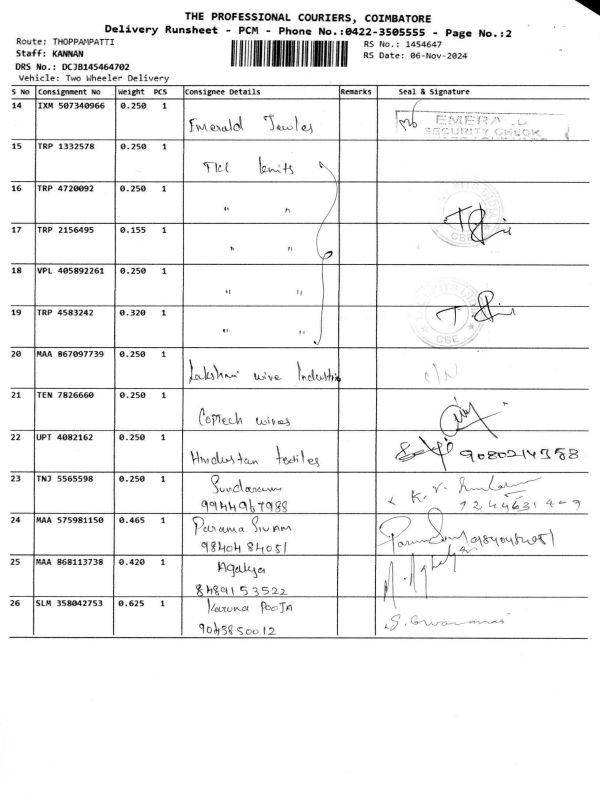 THE PROFESSIONAL COURIERS, COIMBATORE
Delivery Runsheet - PCM - Phone No.:0422-3505555 - Page No.:2
Route: THOPPAMPATTI
RS No.: 1454647
Staff: KANNAN
RS Date: 06-Nov-2024
DRS No.: DCJB145464702
Vehicle: Two Wheeler Delivery
S No Consignment No Weight PCS Consignee Details Remarks Seal & Signature
14 IXM 507340966 0.250 1
Emerald Jewles
EMERA
SECURITY CHECK
15 TRP 1332578 0.250 1
knits
16 TRP 4720092 0.250 1
" "
17 TRP 2156495 0.155 1
" "
CBE
18 VPL 405892261 0.250 1
" "
19 TRP 4583242 0.320 1
" "
CBE
20 MAA 867097739 0.250 1
Lakshmi wire Industris
21 TEN 7826660 0.250 1
Coptech wires
22 UPT 4082162 0.250 1
Hindustan textiles
9080214358
23 TNJ 5565598 0.250 1
Sundaram
9944967988
K. V.
24 MAA 575981150 0.465 1
Parama Sivam
9840484051
25 MAA 868113738 0.420 1
Agalya
8489153522
26 SLM 358042753 0.625 1
Karuna PooJA
9043850012